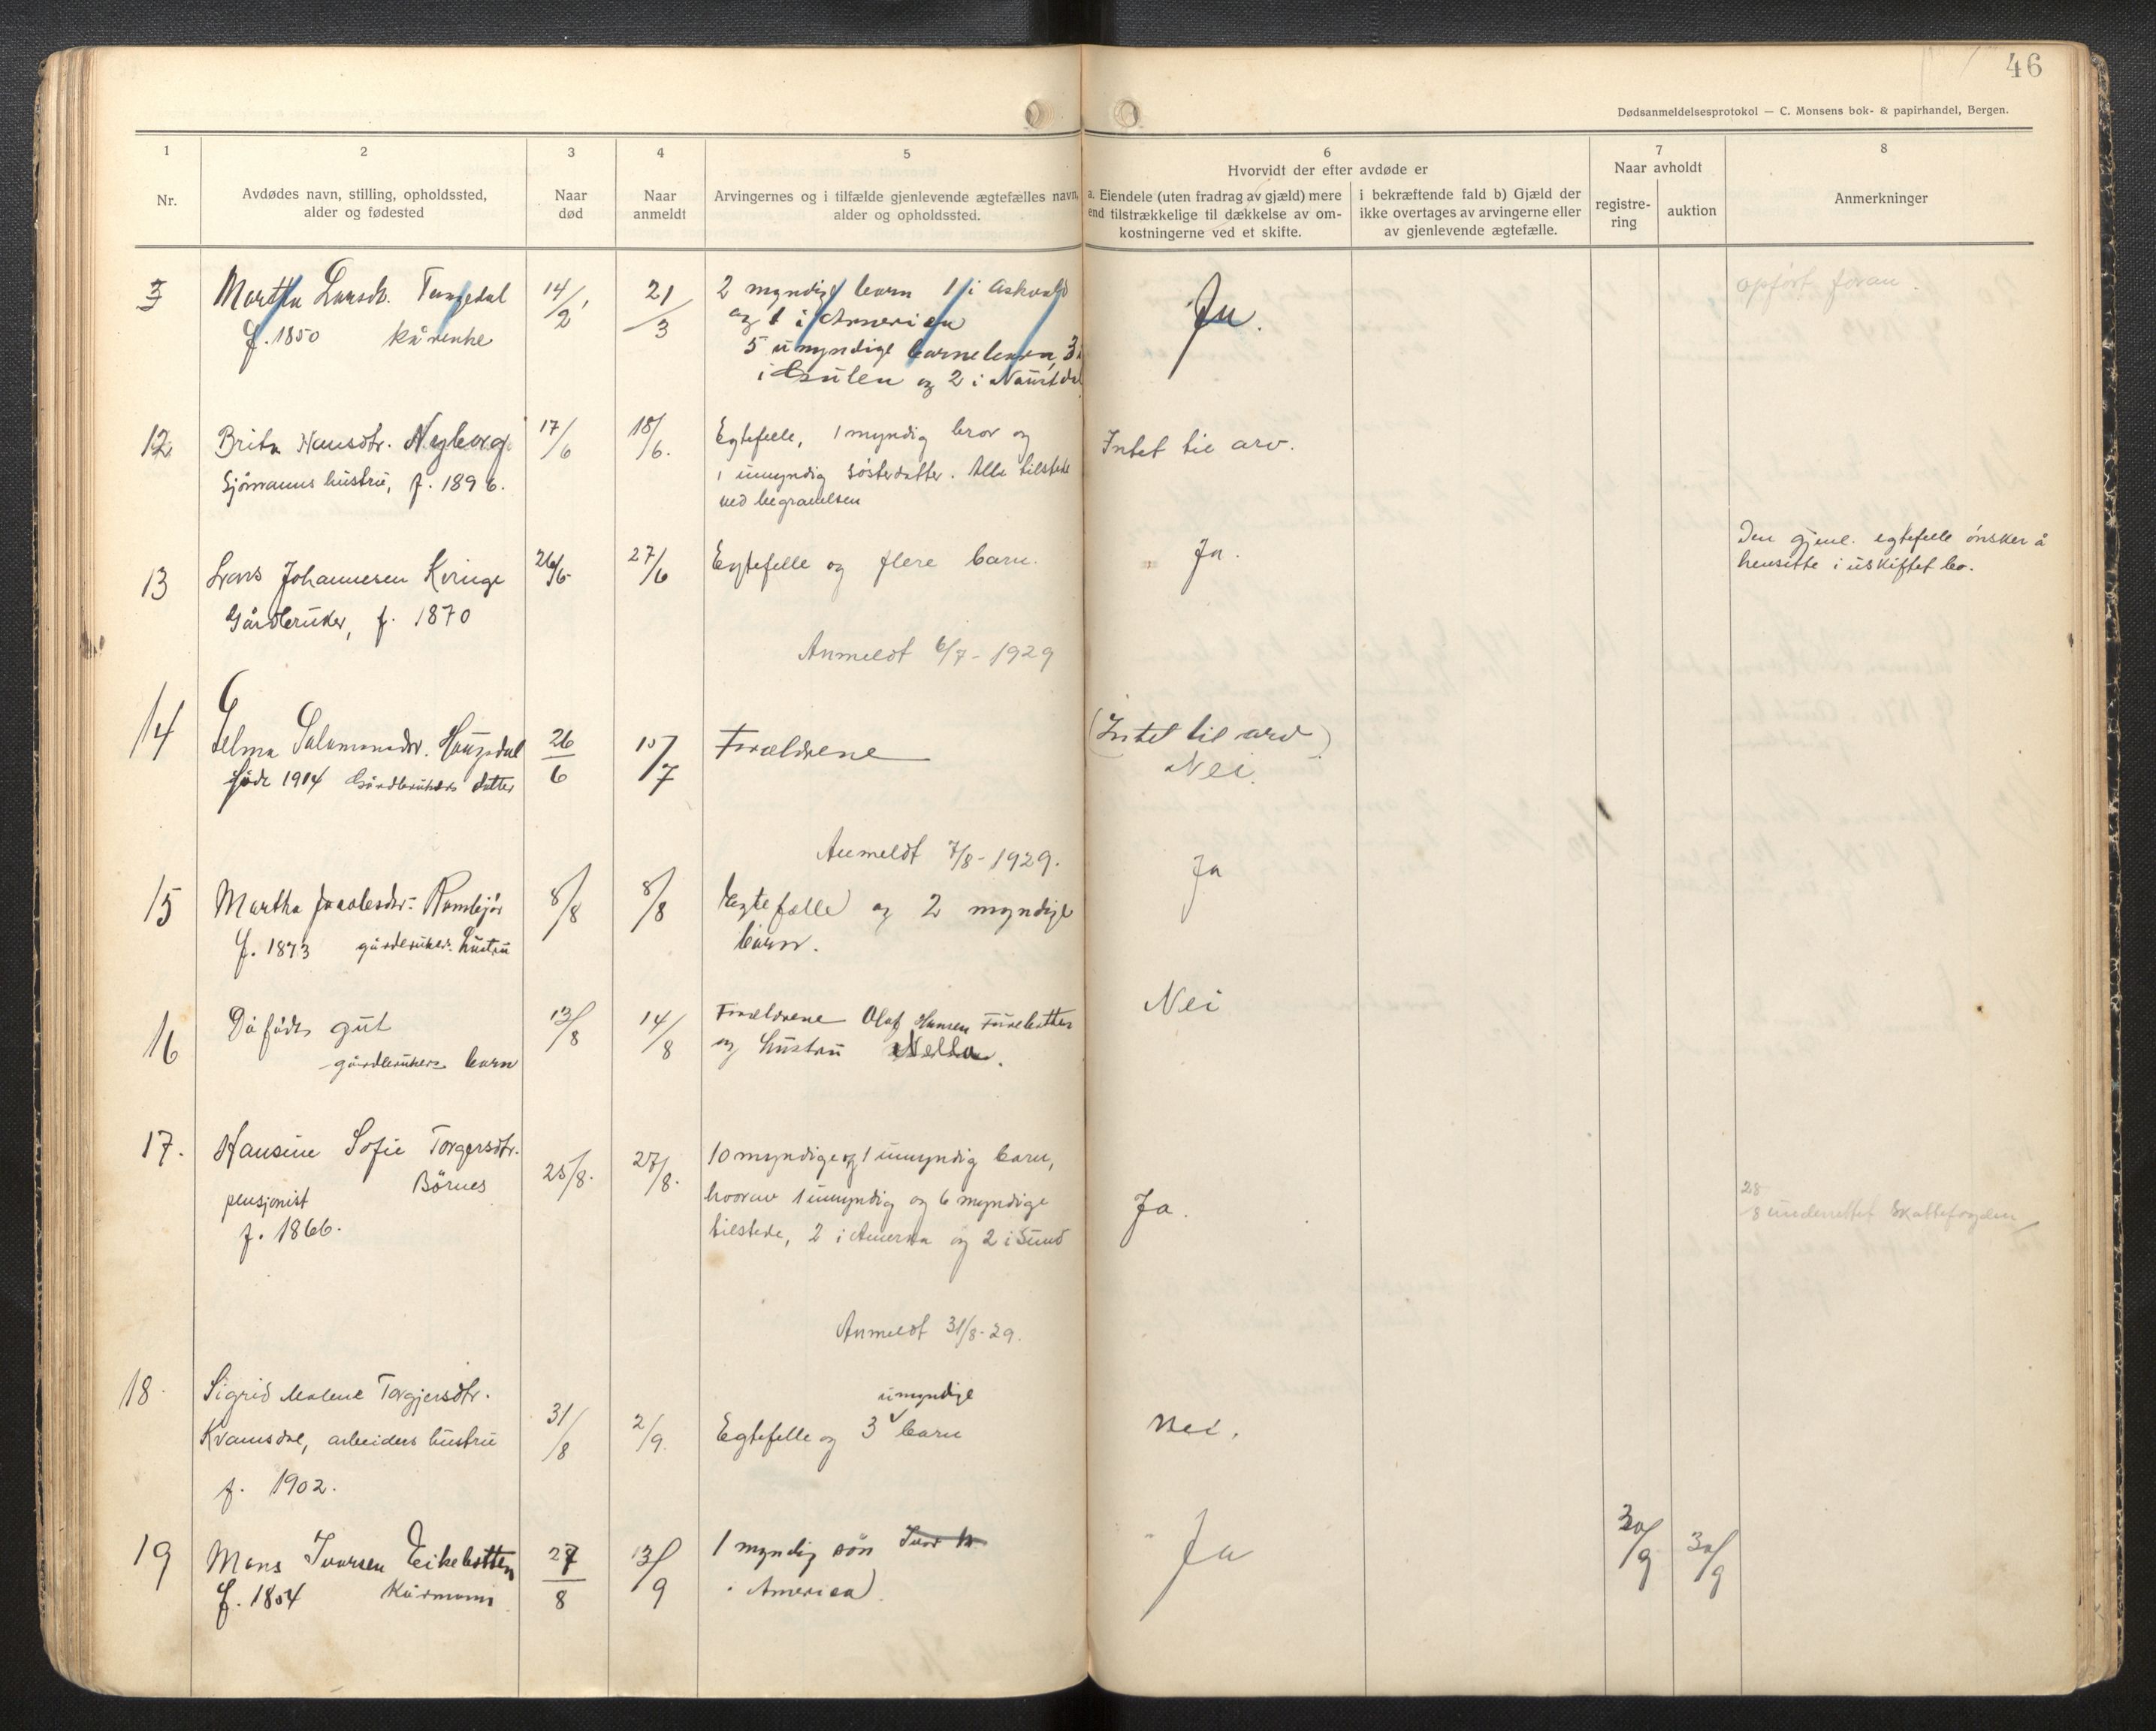 46
Dødsanmeldelsesprotokol — C. Monsens bok- & papirhandel, Bergen.
1
Nr.
2
Avdødes navn, stilling, opholdssted,
alder og fødested
3
Naar
død
4
Naar
anmeldt
5
Arvingernes og i tilfælde gjenlevende ægtefælles navn,
alder og opholdssted.
6
Hvorvidt der efter avdøde er
a. Eiendele (uten fradrag av gjæld) mere
end tilstrækkelige til dækkelse av om-
kostningerne ved et skifte.
i bekræftende fald b) Gjæld der
ikke overtages av arvingerne eller
av gjenlevende ægtefælle.
7
Naar avholdt
registre-
ring
auktion
8
Anmerkninger
Martha Larsdt. Tangedal
f. 1850 kårenke
14/2
21/3
2 myndige barn 1 i Askvold
og 1 i America
5 umyndige barnebarn, 3
i Gulen og 2 i Naustdal
Ja.
opført foran.
12
Brita Hansdtr. Nyborg
Sjømanns hustru, f. 1896.
17/6
18/6.
Egtefelle, 1 myndig bror og
1 umyndig søsterdatter. Alle tilstede
ved begravelsen
Intet til arv.
13
Lars Johannesen Kringe
Gårdbruker, f. 1870
26/6.
27/6
Egtefelle og flere barn.
Ja.
Den gjenl. egtefelle ønsker å
hensitte i uskiftet bo.
Anmeldt 6/7 - 1929
14
Selma Salamonsdtr. Haugsdal
født 1914 Gårdbrukers datter
26/6
15/7
Forældrene
(Intet til arv)
Nei.
Anmeldt 7/8 - 1929.
15
Martha Jacobsdtr. Ramsbjør
f. 1873 gårdbruker. hustru
8/8
8/8
Egtefælle og 2 myndige
barn.
Ja
16
Dåfødt gut
gårdbrukers barn
13/8
14/8
Forældrene Olaf Hansen Furebotten
og hustru Nella.
Nei
17.
Hansine Sofie Torgersdtr.
Børnes
pensjonist
f. 1866.
25/8.
27/8.
10 myndige og 1 umyndig barn,
hvorav 1 umyndig og 6 myndige
tilstede, 2 i Amerika og 2 i Sund
Ja.
28/8 underrettet Skattefogden
Anmeldt 31/8-29.
18.
Sigrid Malene Torgjersdtr.
Kvamsdal, arbeiders hustru
f. 1902.
31/8
2/9.
umyndige
Egtefelle og 3 barn
Nei.
19
Mons Ivarsen Eikebotten
f. 1854 Kårmann
27/8
13/9
1 myndig søn
i America.
Ja
30/9
30/9